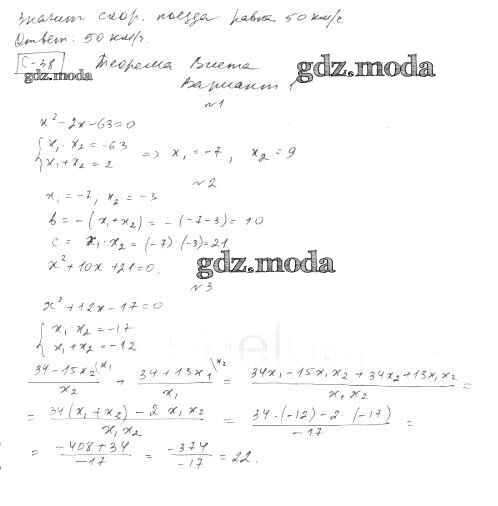 Значит скор. поезда равна 50 км/с
Ответ: 50 км/ч.
С-38 Теорема Виета gdz.moda
gdz.moda Вариант 1
№1
x² - 2x - 63 = 0
{ x₁ · x₂ = -63
{ x₁ + x₂ = 2 => x₁ = -7, x₂ = 9
№2
x₁ = -7, x₂ = -3
b = -(x₁ + x₂) = -(-7-3) = 10
c = x₁ · x₂ = (-7)(-3) = 21
x² + 10x + 21 = 0. gdz.moda
№3
x² + 12x - 17 = 0
{ x₁ · x₂ = -17
{ x₁ + x₂ = -12
(34 - 15x₂)/x₂ \x₁ + (34 + 13x₁)/x₁ \x₂ = (34x₁ - 15x₁x₂ + 34x₂ + 13x₁x₂)/(x₁x₂) =
= (34(x₁ + x₂) - 2x₁x₂)/(x₁x₂) = (34·(-12) - 2·(-17))/(-17) =
= (-408 + 34)/(-17) = (-374)/(-17) = 22.